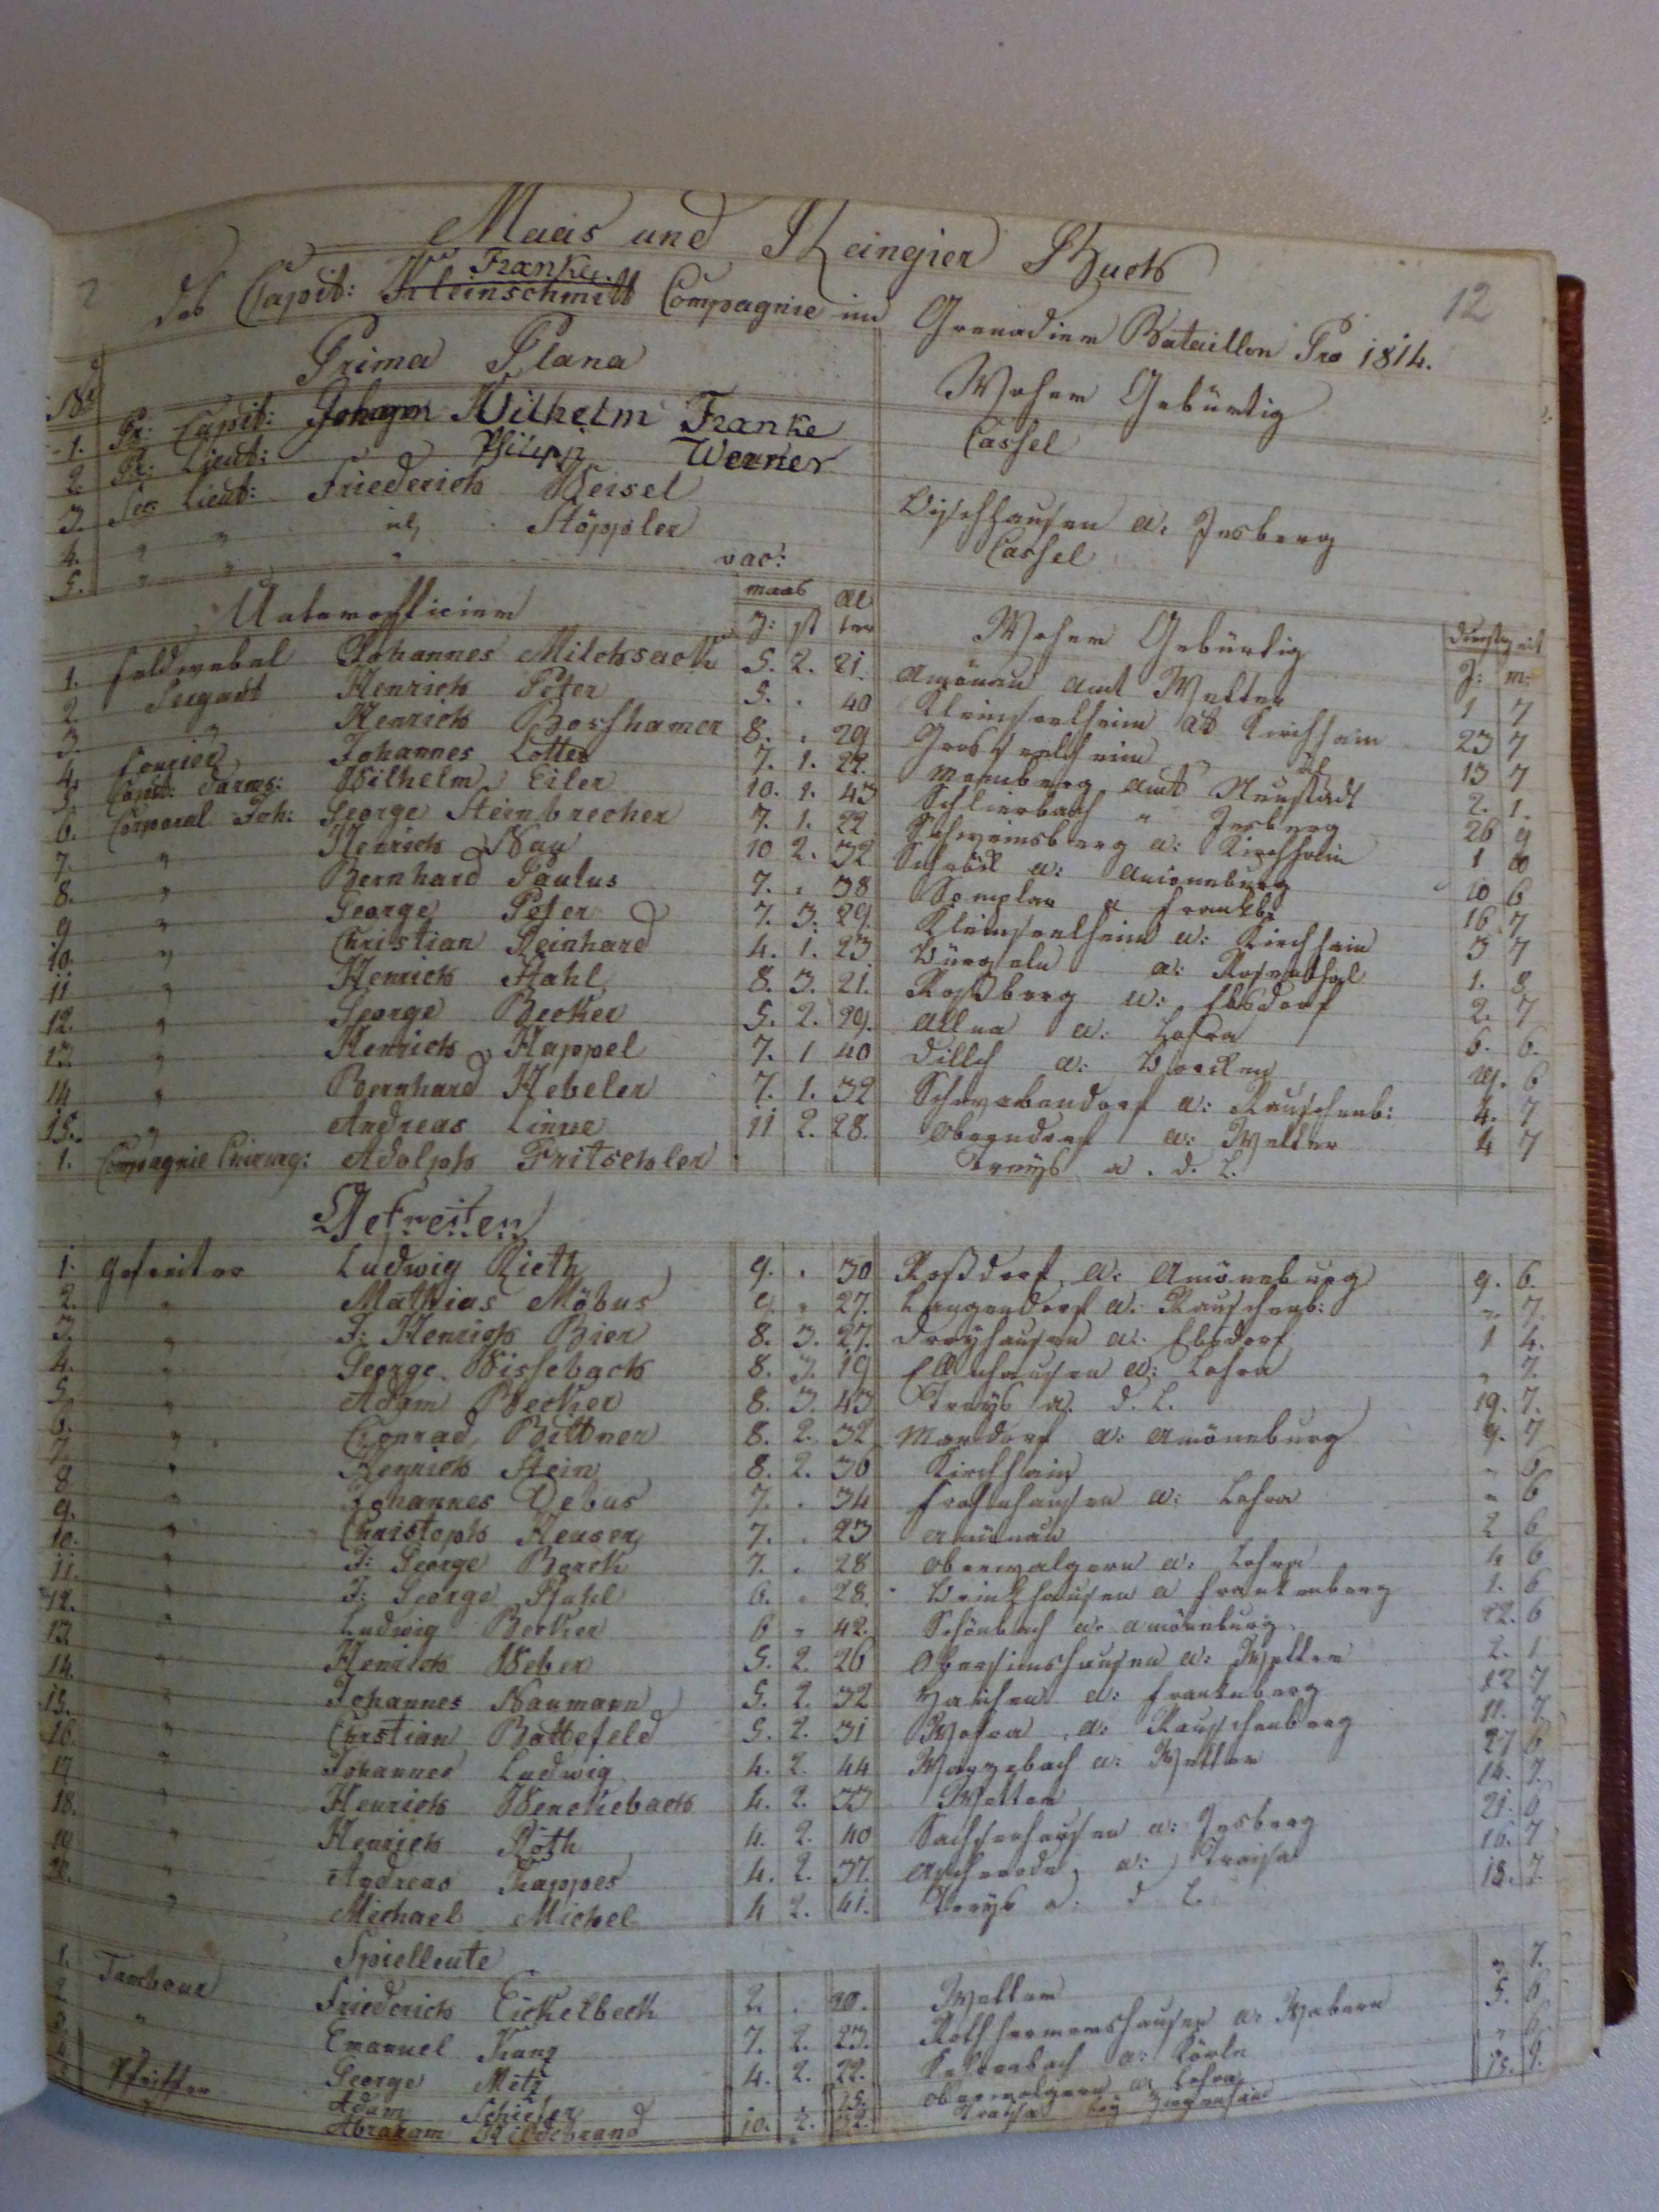 Maas und Rangier Buch
12
des Capit: Kleinschmitt Franke Compagnie im Grenadier Bataillon Pro 1814.
Prima Plana Woher Gebürtig
No
1. Pr: Capit: Johann Wilhelm Franke Cassel
2. Pr: Lieut: Philipp Werner
3. Sec: Lieut: Friederich Weisel Bischhausen a: Jesberg
4. " " Stöppler Cassel
5. " " vac:
Unterofficier maas al Woher Gebürtig Dienstzeit
Z: st ter J: m:
1. Feldwebel Johannes Milchsack 5. 2. 21. Amönau Amt Wetter 1 7
2. Sergant Henrich Peter 5. . 40 Kleinseelheim Kirchhain 23 7
3. " Henrich Bosshamer 8. . 29 Grosseelheim 13 7
4. Fourier Johannes Lotter 7. 1. 22. Momberg Amt Neustadt 2. 1.
5. Capit: Darms: Wilhelm Eiler 10. 1. 43 Schlierbach " Jesberg 26 9
6. Corporal Joh: George Steinbrecher 7. 1. 22 Schweinsberg a: Kirchhain 1
7. " Henrich Nau 10 2. 32 Schröck a: Amöneburg 10 6
8. " Bernhard Paulus 7. . 38 Somplar a Frankb: 16 7
9 " George Peter 7. 3. 29. Kleinseelheim a: Kirchhain 3 7
10. " Christian Reinhard 4. 1. 23 Bürgeln a: Rosenthal 1. 8
11 " Henrich Stahl 8. 3. 21. Rossberg a: Ebsdorf 2. 7
12. " George Becker 5. 2. 29. Allna a: Lohra 6. 6.
13. " Henrich Happel 7. 1 40 Dillich a: Borcken 19. 6
14 " Bernhard Hebeler 7. 1. 32 Schwabendorf a: Rauschenb: 4. 7
15. " Andreas Linne 11 2. 28. Oberndorf a: Wetter 4 7
1. Compagnie Chirurg: Adolph Fritschler Treys a. d. L.
Gefreiten
1. Gefreiter Ludwig Rieth 9. . 30 Roßdorf a: Amöneburg 9. 6.
2. " Mathias Möbus 9. " 27. Langendorf a: Rauschenb: " 7.
3. " J: Henrich Bier 8. 3. 27. Dreyhausen a: Ebsdorf 1 4.
4. " George Wissebach 8. 3. 19 Ellnhausen a: Lohra " 7.
5. " Adam Becker 8. 3. 43 Treys a. d. L. 19. 7.
6. " Conrad Bittner 8. 2. 32 Mardorf a: Amöneburg 9. 7
7. " Henrich Stein 8. 2. 30 Kirchhain " 6
8 " Johannes Debus 7. . 34 Fronhausen a: Lohra " 6
9. " Christoph Heuser 7. . 23 Amönau 2 6
10. " J: George Borck 7. . 28 Oberwalgern a: Lohra 4 6
11. " J: George Stahl 6. . 28. a Frankenberg 1. 6
12. " Ludwig Becker 6 " 42. Schönbach a: Amöneburg 22. 6
13 " Henrich Weber 5. 2. 26 Obersimshausen a: Wetter 2. 1
14. " Johannes Naumann 5. 2. 32 a: Frankenberg 12 7
15. " Christian Battefeld 5. 2. 31 Wohra a: Rauschenberg 11. 7
16. " Johannes Ludwig 4. 2. 44 Warzebach a: Wetter 27 6
17 " Henrich Wenckebach 4. 2. 33 Wetter 14. 7.
18. " Henrich Roth 4. 2. 40 a: Jesberg 21. 6
19 " Andreas Kappes 4. 2. 37. Ascherode a: Treisa 16. 7
20. " Michael Michel 4 2. 41. Treys a: d L. 18. 7.
Spielleute
1. Tambour Friederich Eickelbeck 2. . 20. Wetter " 7.
2 " Emanuel Kanz 7. 2. 23. a: Wabern 5. 6
3. George Metz 4. 2. 22. a: Körle " 6
Pfeiffer Adam Schiefer 15. Oberwalgern a: Lohra
" Abraham Hildebrand 10. 2. 32. Treysa bey Ziegenhain 15. 7.